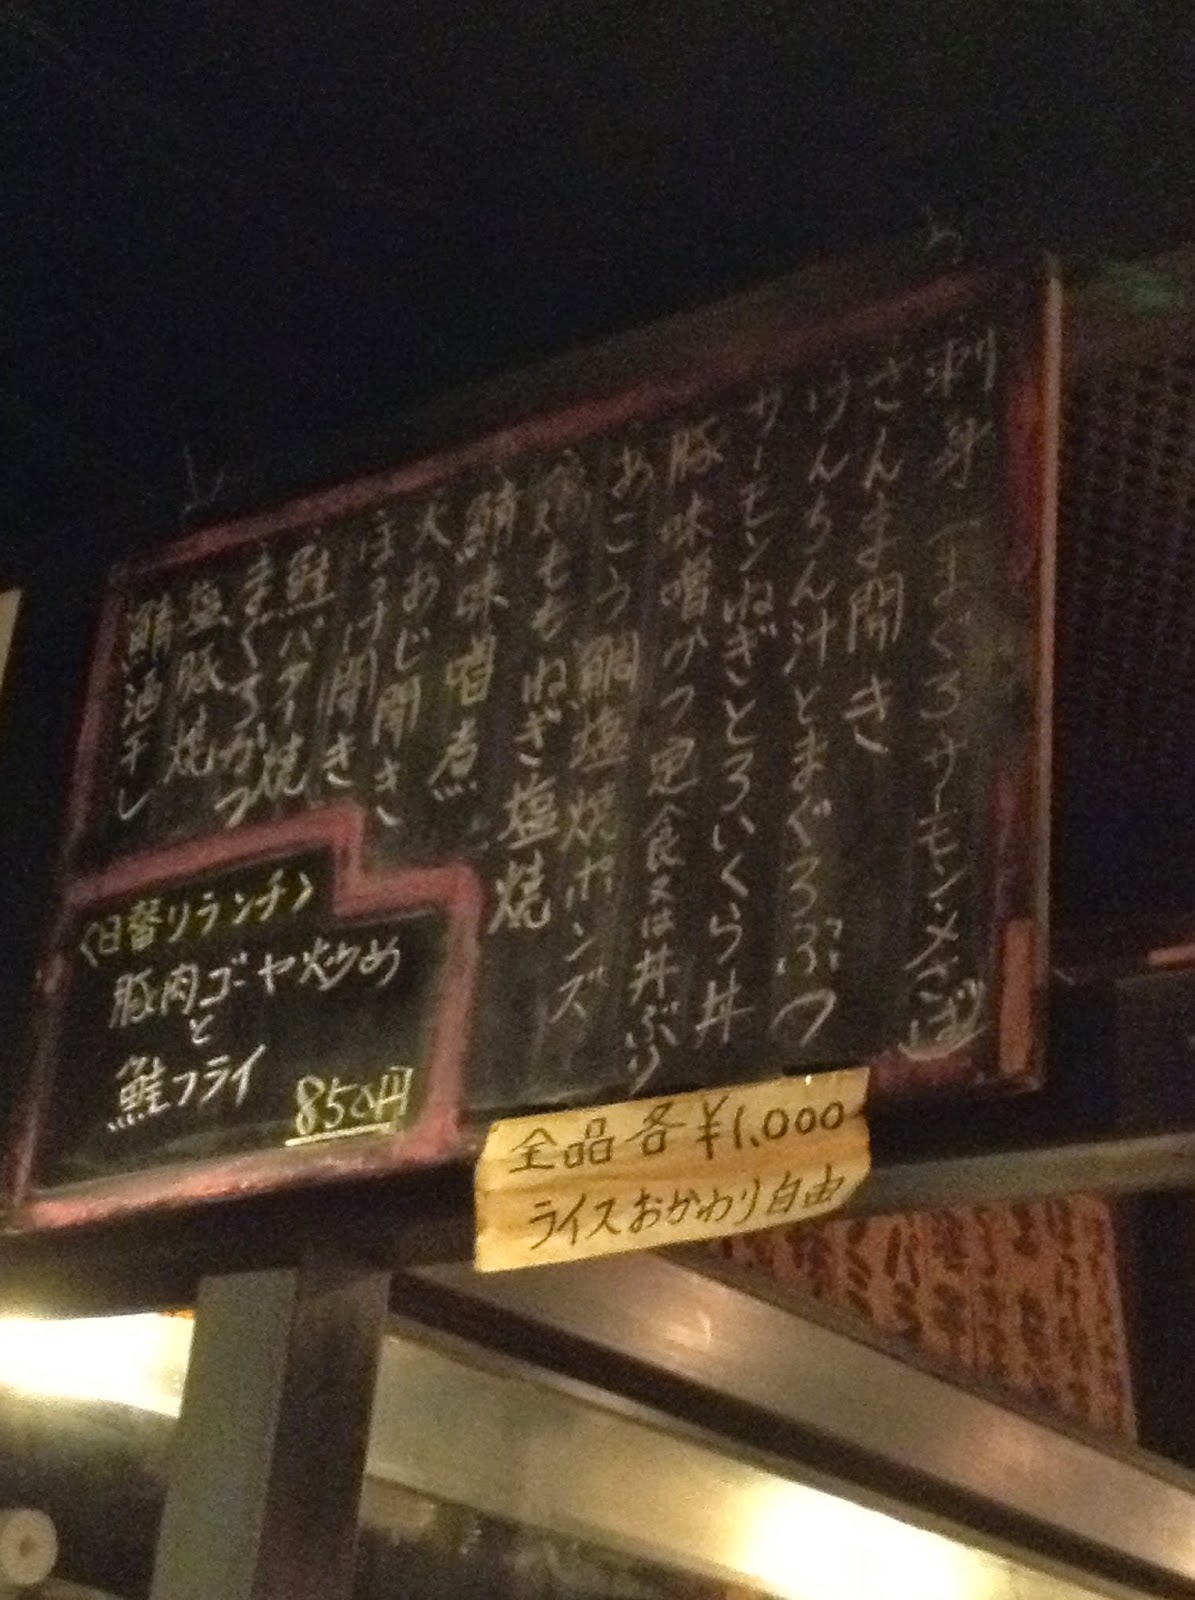 刺身 まぐろサーモン〆さば
さんま開き
けんちん汁とまぐろぶつ
サーモンねぎとろいくら丼
豚味噌 定食又は丼ぶり
あこう鯛塩焼ポンズ
鶏ももねぎ塩焼
鯖味噌煮
大あじ開き
ほっけ開き
鮭バター焼
まぐろかつ
塩豚焼
鯖酒干し
〈日替りランチ〉
豚肉ゴーヤ炒め
と
鮭フライ
850円
全品各¥1,000
ライスおかわり自由